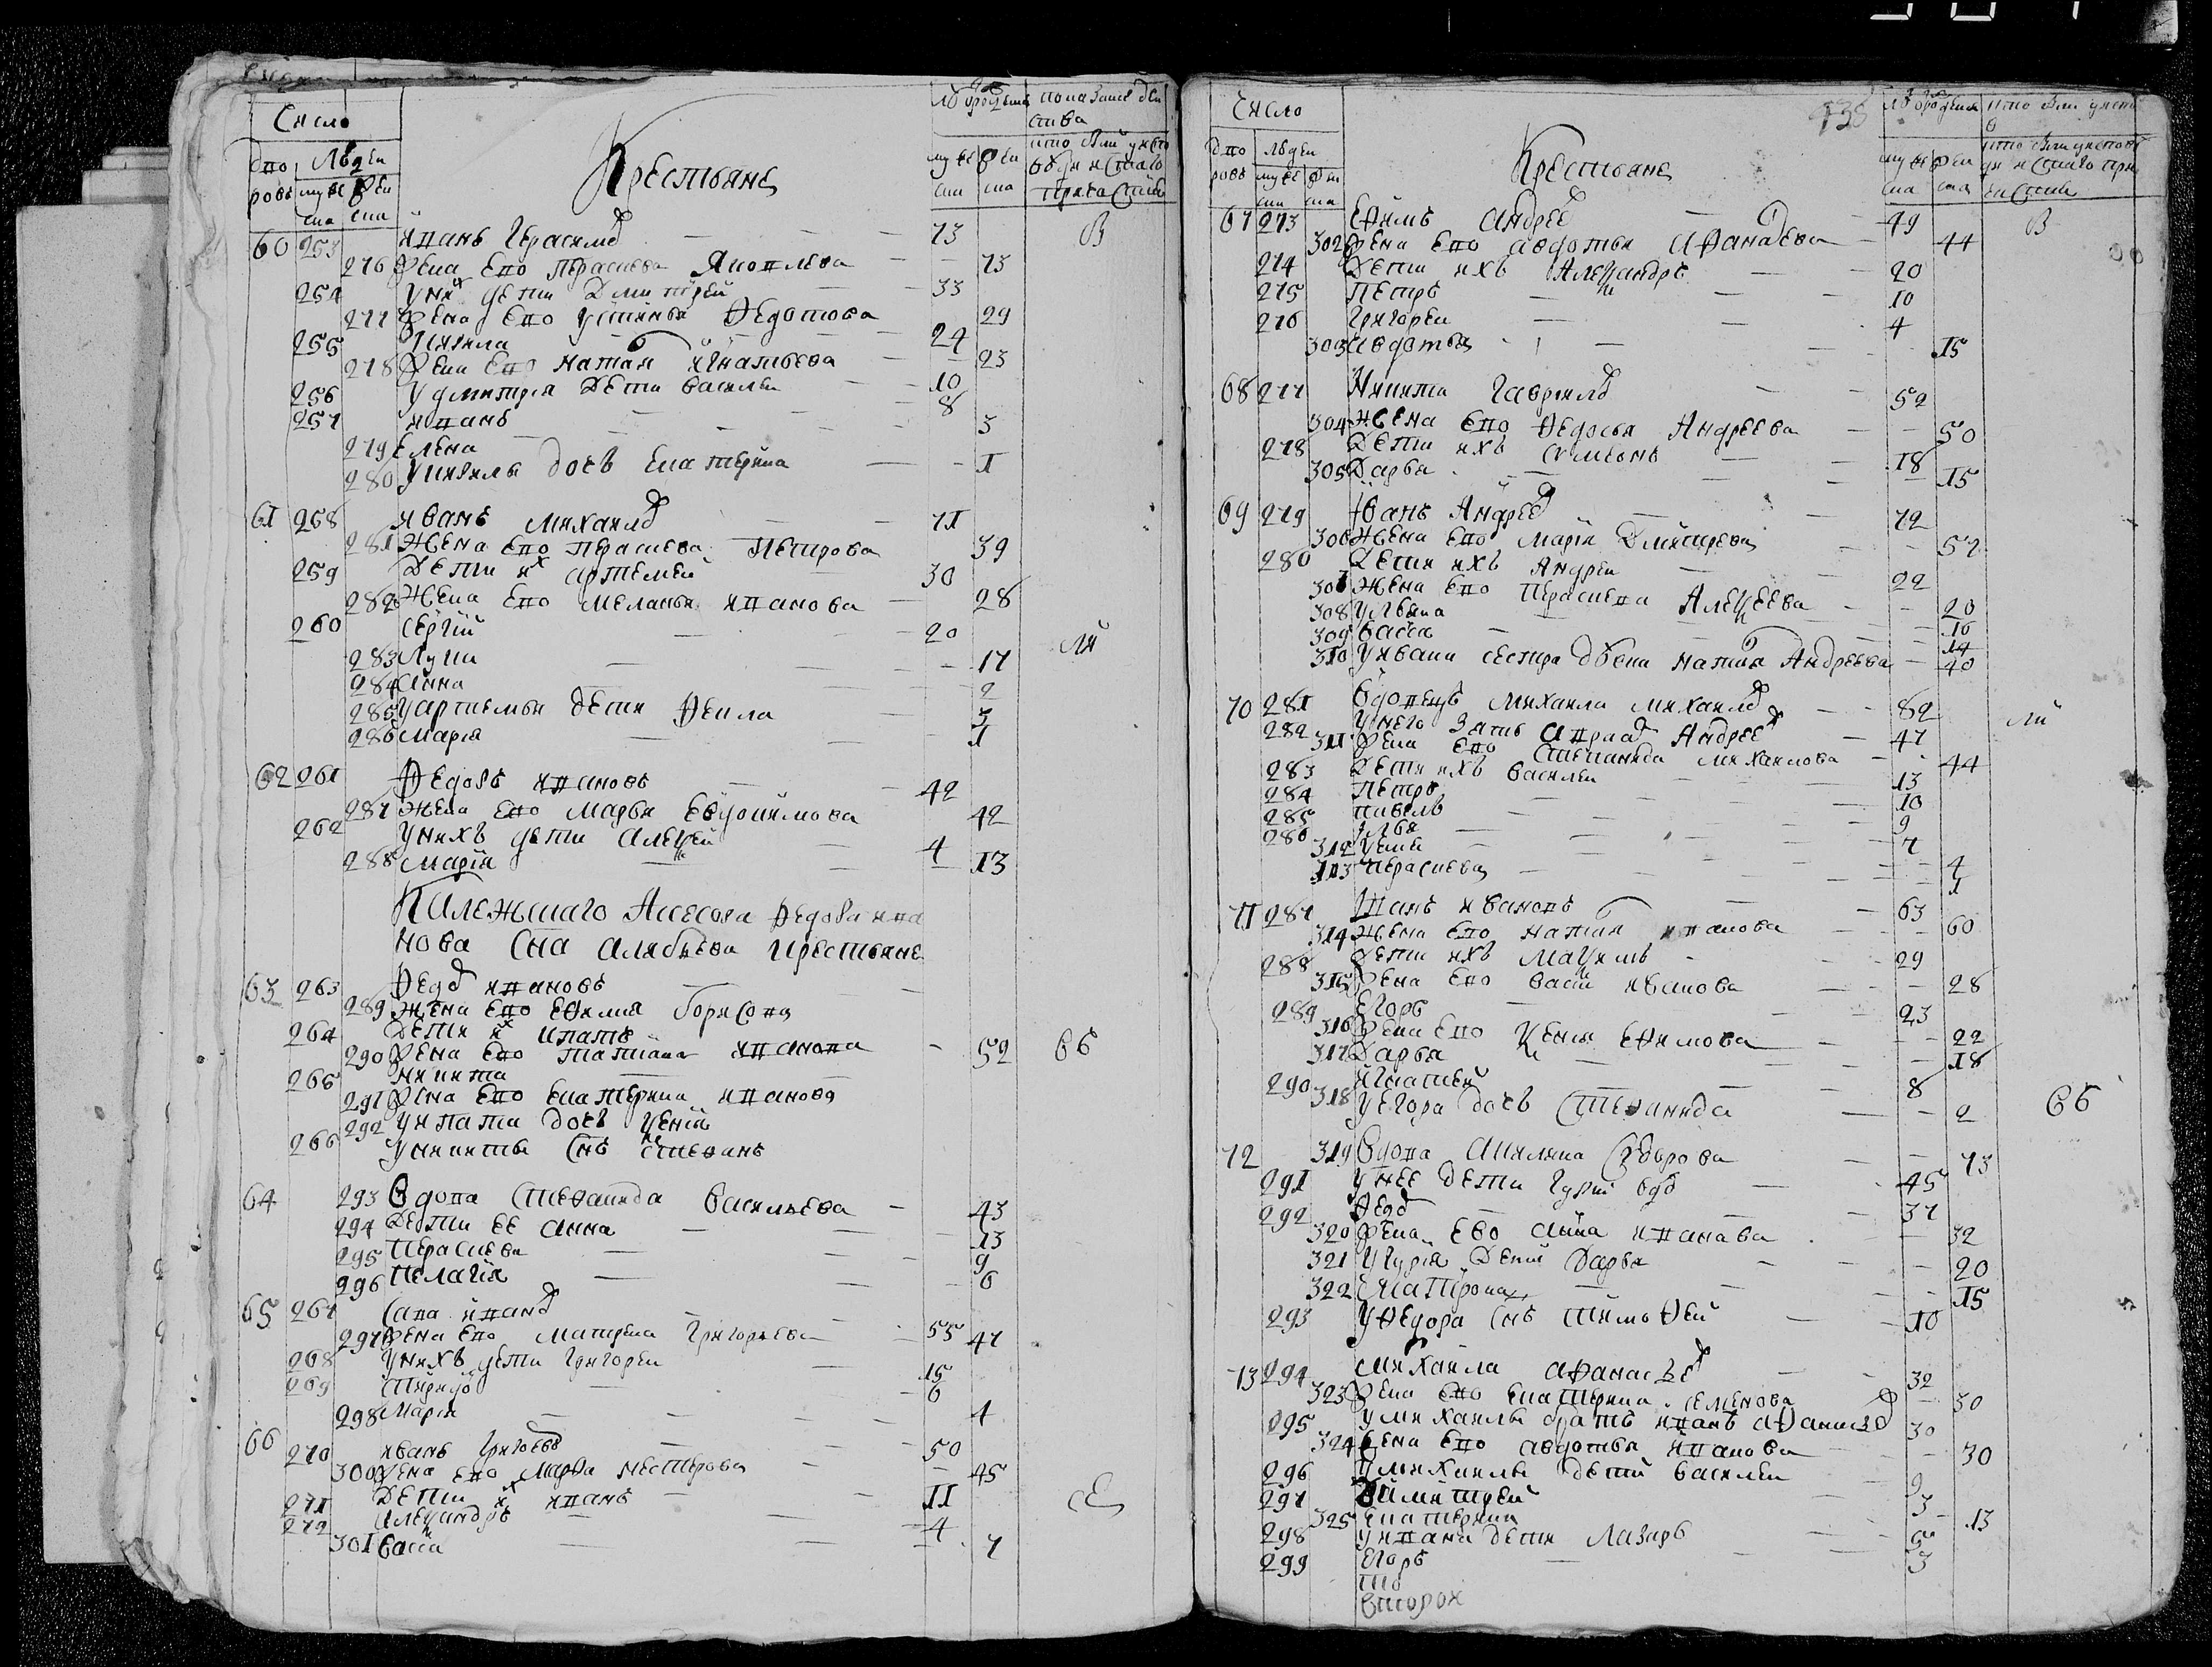 Число
дво ровъ
людеи
муже ска
жен ска
Крестьяне
муже ска
жен ска
60 253 Иванъ Герасимо 73
276 Жена Ево Парасковья Яковлева 73
254 У них дети Дмитрей 33
277 Жена Ево Устинья Федотова 29
255 24
278 Жена Ево Наталя Игнатьева 23
256 У Дмитрея Дети Василеи 10
257 Иванъ 8
279 Елена 3
280 дочь Екатерина 1
61 258 Иванъ Михаило 71
281 Жена Ево Парасковья Петрова 39
259 Дети их Артемеи 30
282 Жена Ево Меланья Иванова 28
260 Сергій 20
283 17
284 Анна 2
285 У Артемья дети Фекла 3
286 Марія 1
62 261 Федоръ Ивановъ 42
287 Жена Ево Марья Евдокимова 42
262 У нихъ дети Алексей 4
288 Марія 13
Калежскаго Асесора Федора Ива
нова Сна Алябьева крестьяне
63 263 Федо Ивановъ
289 Жена Ево Ефимия Борисова
264 Дети их Ипатъ
290 Жена Ево Татіана Иванова 52
265 Никита
291 Жена Ево Екатерина Иванова
292 У Ипата дочь Ксенія
266 У Никиты Снъ Стефанъ
64 293 Вдова Стефанида Васильева 43
294 Дети ее Анна 13
295 Парасковья 9
296 Пелагія 6
65 267 Сава Ивано 55
297 Жена Ево Матрена Григорьева 47
268 У нихъ дети Григореи 15
269 6
298 Марія 4
66 270 Иванъ Григоревъ 50
300 Жена Ево Марѳа Нестерова 45
271 Дети их Иванъ 11
272 Александръ 4
301 Васса 7
Число
дво ровъ
людеи
муже ска
жен ска
Крестьяне
муже ска
жен ска
67 273 Ефимъ Андрее 49 В
302 Жена Ево Авдотья Афанасева 44
274 Дети ихъ Александръ 20
275 Петръ 10
276 Григореи 4
303 Авдотья 15
68 277 Никита Гаврило 52
304 Жена Ево Федосья Андреева 50
278 Дети ихъ Симіонъ 18
305 Дарья 15
69 279 Иванъ Андрее 72
306 Жена Ево Марія Дмитрева 57
280 Дети ихъ Андреи 22
307 Жена Ево Парасковья Алексеева 20
308 Ульяна 16
309 Васса 14
310 У Ивана сестра Наталя Андреева 40
70 281 Вдовецъ Михаила Михаило 82
282 У него Зять Андрее 47
311 Жена Ево Степанида Михаилова 44
283 Дети ихъ Василеи 13
284 Петръ 10
285 Павелъ 9
286 Илья 7
312 4
313 Парасковья 1
71 287 Иванъ Ивановъ 63
314 Жена Ево Наталя Иванова 60
288 Дети ихъ Максимъ 29
315 Жена Ево Васса Иванова 28
289 Егоръ 23
316 Жена Ево Ксенія Ефимова 22
317 Дарья 18
290 Игнатей 8
318 У Егора дочь Стефанида 2
72 319 Вдова Акилина Сидорова 73
291 У нее дети Гурій вдо 45
292 Федо 37
320 Жена Ево Анна Иванава 32
321 У Гурія Дети Дарья 20
322 Матрона 15
293 У Федора Снъ Тимофеи 10
73 294 Михаила Афанасье 32
323 Жена Ево Екатерина Семенова 30
295 У Михаилы братъ Иванъ Афанасье 30
324 Жена Ево Авдотья Иванова 30
296 У Михаилы дети Василеи 9
297 Димитреи 3
325 Екатерина 13
298 У Ивана дети Лазарь 5
299 Егоръ 3